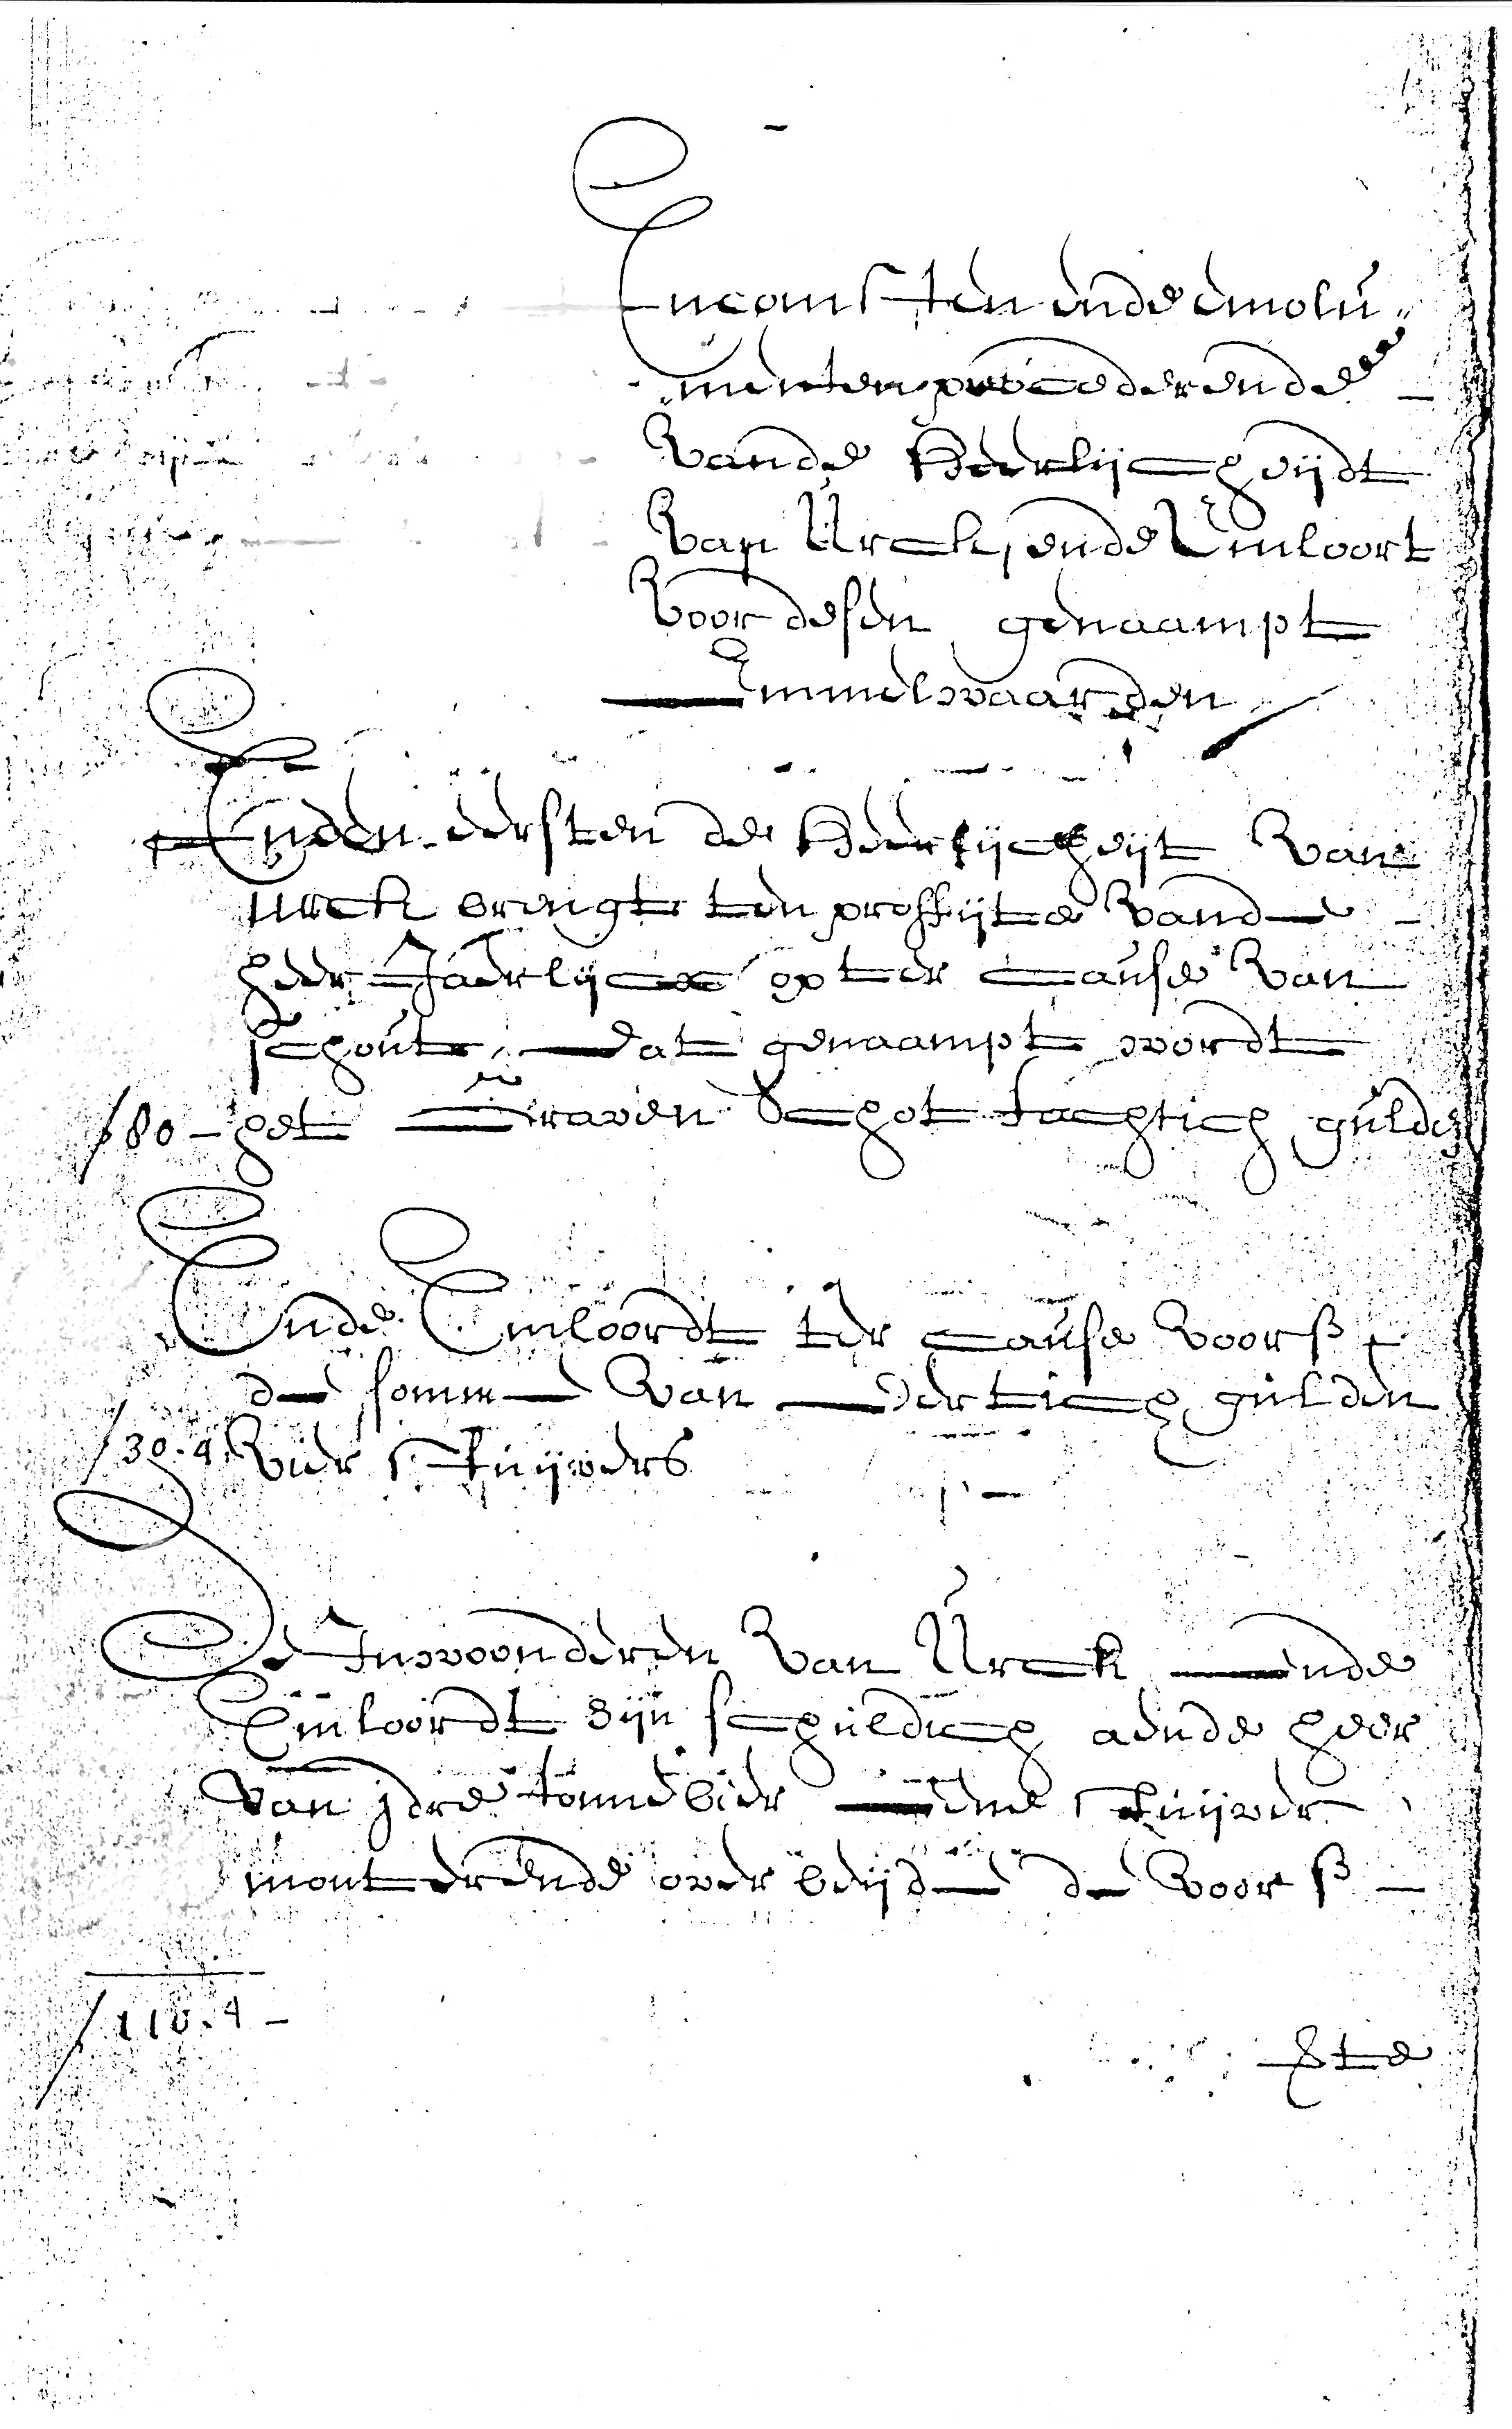 Incomsten ende emolu„
„menten procederende
vande Heerlijcheijdt
van Urck, ende Emloort
voor desen genaampt
Emmelwaarden
Inden eersten de Heerlijcheijt van
urck brengt ten proffijte vande
heer Jaerlijcx op ter cause van
schout, dat genaampt wordt
/80 - het Graven Schot tachtich gulden
Ende Emloordt ter cause voorß
de somme van dertich gulden
/30.4. vier stuijvers
De Inwoonderen van Urck ende
Emloordt zijn schuldich aende heer
van jdre tonne bier eene stuijver
monterende over beijde de voorß
/110.4 -
Ste